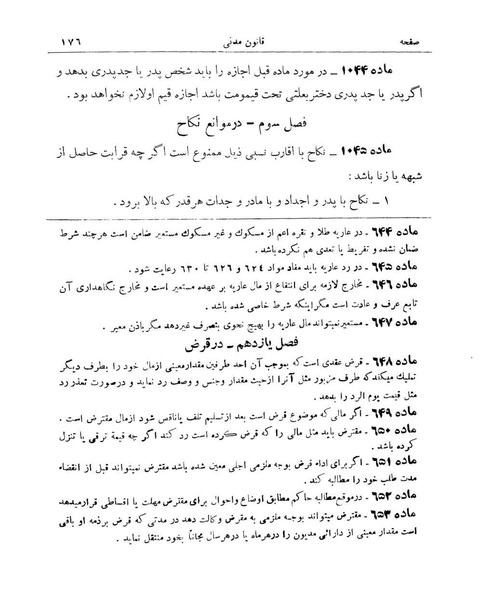 صفحه قانون مدنی ۱۷۶
ماده ۱۰۴۴ ـ در مورد ماده قبل اجازه را باید شخص پدر یا جدپدری بدهد و
اگرپدر یا جد پدری دختربعلتی تحت قیمومت باشد اجازه قیم اولازم نخواهد بود .
فصل سوم ـ درموانع نکاح
ماده ۱۰۴۵ ـ نکاح با اقارب نسبی ذیل ممنوع است اگر چه قرابت حاصل از
شبهه یا زنا باشد :
۱ ـ نکاح با پدر و اجداد و با مادر و جدات هرقدر که بالا برود .
ماده ۶۴۴ ـ در عاریه طلا و نقره اعم از مسکوک و غیر مسکوک مستعیر ضامن است هرچند شرط
ضمان نشده و تفریط یا تعدی هم نکرده باشد .
ماده ۶۴۵ ـ در رد عاریه باید مفاد مواد ۶۲۴ و ۶۲۶ تا ۶۳۰ رعایت شود .
ماده ۶۴۶ ـ مخارج لازمه برای انتفاع از مال عاریه بر عهده مستعیر است و مخارج نگاهداری آن
تابع عرف و عادت است مگراینکه شرط خاصی شده باشد .
ماده ۶۴۷ ـ مستعیرنمیتواندمال عاریه را بهیچ نحوی بتصرف غیردهد مگرباذن معیر .
فصل یازدهم ـ درقرض
ماده ۶۴۸ ـ قرض عقدی است که بموجب آن احد طرفین مقدارمعینی ازمال خود را بطرف دیگر
تملیک میکندکه طرف مزبور مثل آنرا ازحیث مقدار وجنس و وصف رد نماید و درصورت تعذر رد
مثل قیمت یوم الرد را بدهد .
ماده ۶۴۹ ـ اگر مالی که موضوع قرض است بعد ازتسلیم تلف یاناقص شود ازمال مقترض است .
ماده ۶۵۰ ـ مقترض باید مثل مالی را که قرض کرده است رد کند اگر چه قیمة ترقی یا تنزل
کرده باشد .
ماده ۶۵۱ ـ اگربرای اداء قرض بوجه ملزمی اجلی معین شده باشد مقترض نمیتواند قبل از انقضاء
مدت طلب خود را مطالبه کند .
ماده ۶۵۲ ـ درموقع مطالبه حاکم مطابق اوضاع واحوال برای مقترض مهلت یا اقساطی قرارمیدهد
ماده ۶۵۳ ـ مقترض میتواند بوجه ملزمی به مقرض وکالت دهد در مدتی که قرض برذمه او باقی
است مقدار معینی از دارائی مدیون را درهرماه یا درهرسال مجاناً بخود منتقل نماید .